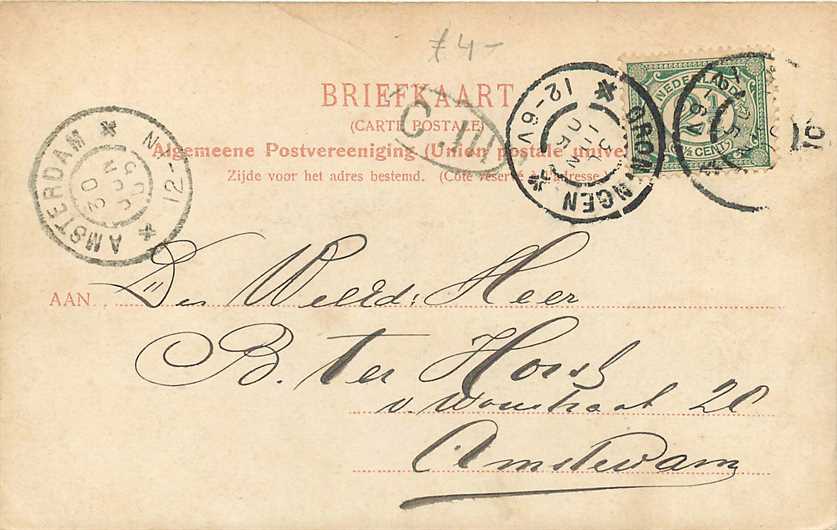 ƒ 4-
BRIEFKAART
(CARTE POSTALE)
Algemeene Postvereeniging (Union postale unive
Zijde voor het adres bestemd. (Côté réservé à adresse
NEDERLAND
2½
CENT
GRONINGEN
12-6V
AMSTERDAM
12-N
AAN
Den WelEd: Heer
B. ter Horst
v. Woustraat 20
Amsterdam